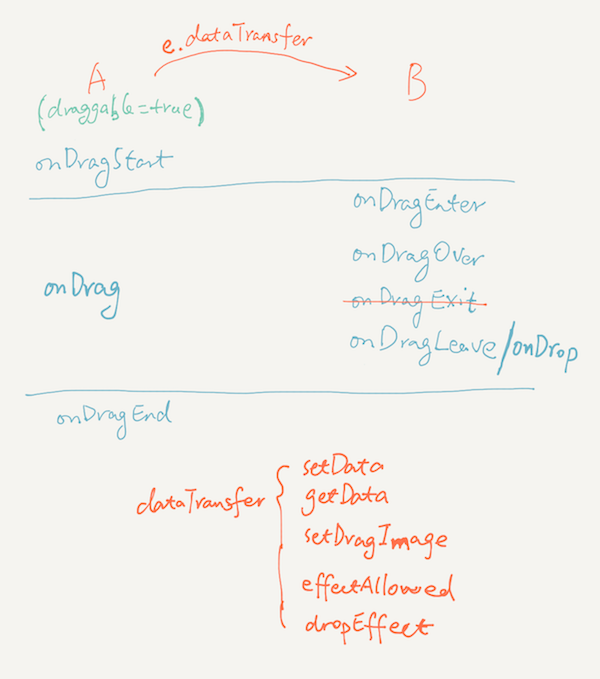 e.dataTransfer
A
B
(draggable=true)
onDragStart
onDragEnter
onDragOver
onDrag
onDragExit
onDragLeave/onDrop
onDragEnd
setData
dataTransfer { getData
setDragImage
effectAllowed
dropEffect